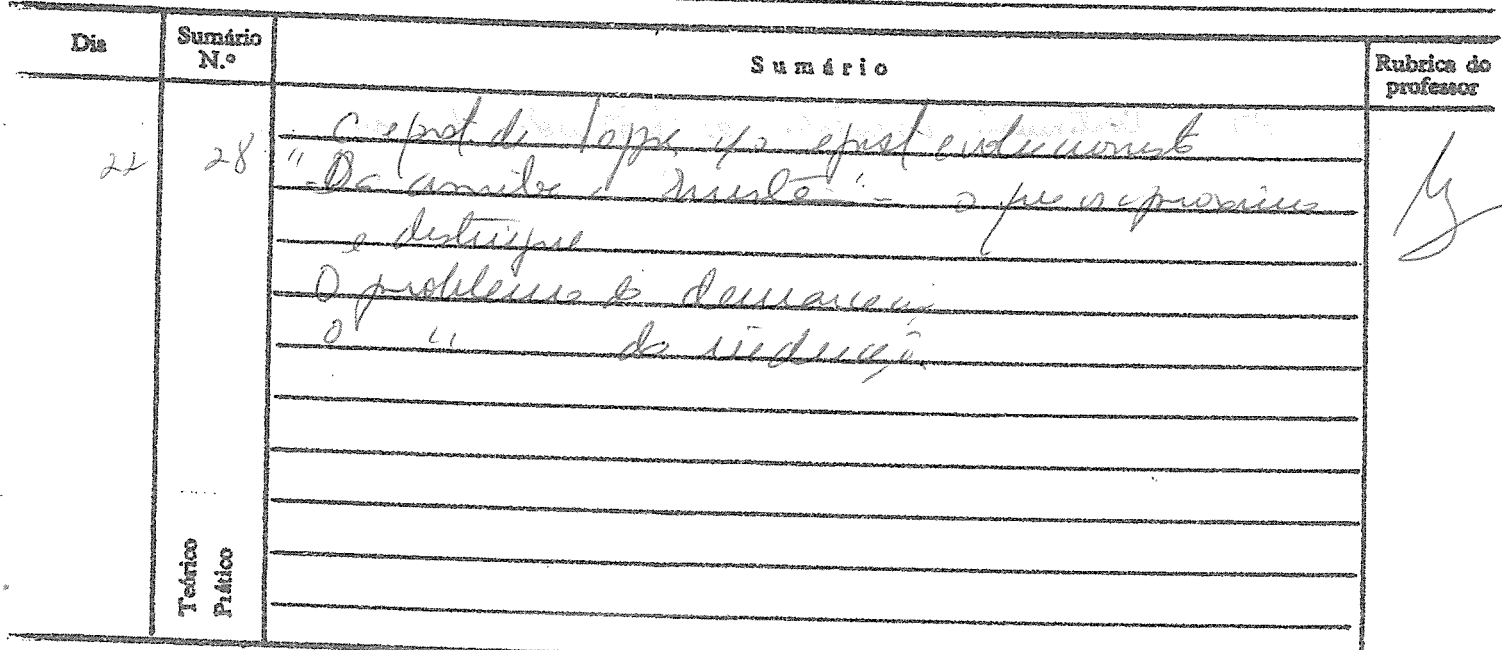 Dia
Sumário N.º
Sumário
Rubrica do professor
22
28
epist. de Popper epist evolucionista
"Da amiba a Einstein" - o que os aproxima
e distingue
O problema da demarcação
O " da indução
Teórico
Prático